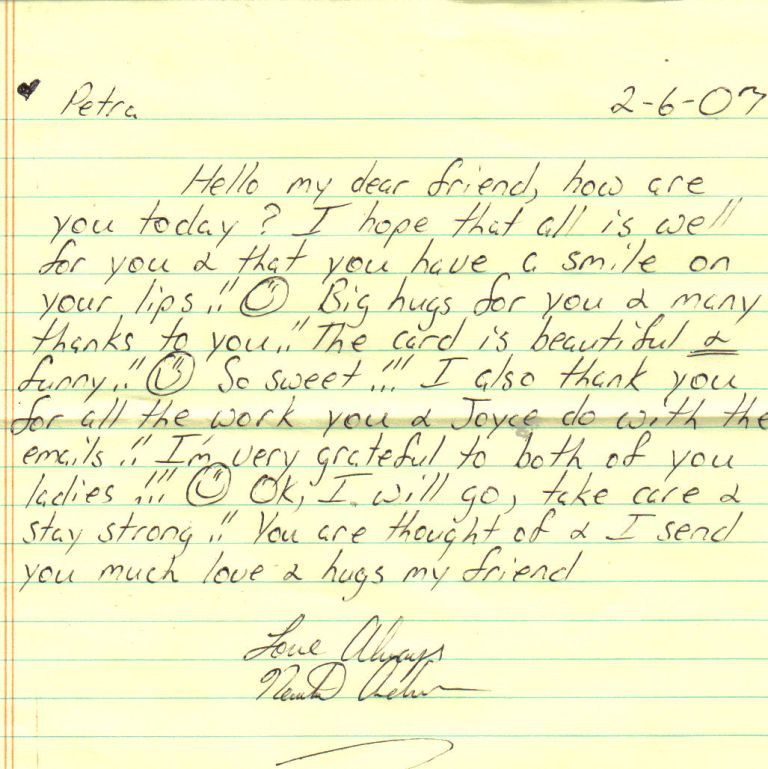 ♥ Petra 2-6-07
Hello my dear friend, how are
you today? I hope that all is well
for you & that you have a smile on
your lips!! ☺ Big hugs for you & many
thanks to you!! The card is beautiful &
funny!! ☺ So sweet!!! I also thank you
for all the work you & Joyce do with the
emails!! I'm very grateful to both of you
ladies!!! ☺ Ok, I will go, take care &
stay strong!! You are thought of & I send
you much love & hugs my friend
Love Always